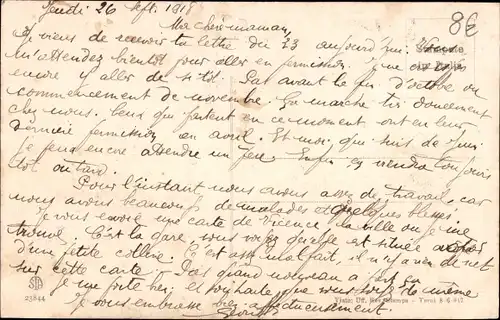 Jeudi 26 Sept. 1918
8€
Ma chère maman,
Je viens de recevoir ta lettre du 23 aujourd'hui.
M'attendez bientôt pour aller en permission. Je ne
encore y aller de si tôt. Pas avant la fin d'octobre ou
commencement de novembre. Ça marche très doucement
chez nous. Ceux qui partent en ce moment ont eu leur
dernière permission en avril. Et moi, qui suis de Juin
je peux encore attendre un peu. Enfin, ça viendra toujours
tôt ou tard.
Pour l'instant nous avons assez de travail, car
nous avons beaucoup de malades et quelques blessés.
Je vous envoie une carte de Vicence, la ville où je me
trouve. C'est la gare, vous voyez qu'elle est située
d'une petite colline. C'est assez mal fait, il n'y a rien de net
sur cette carte. Pas grand nouveau à part ça.
Je me porte bien et souhaite que vous soyez de même
Je vous embrasse bien affectueusement.
23844
Visto: Uff. Rev. Stampa - Terni 8-6-917